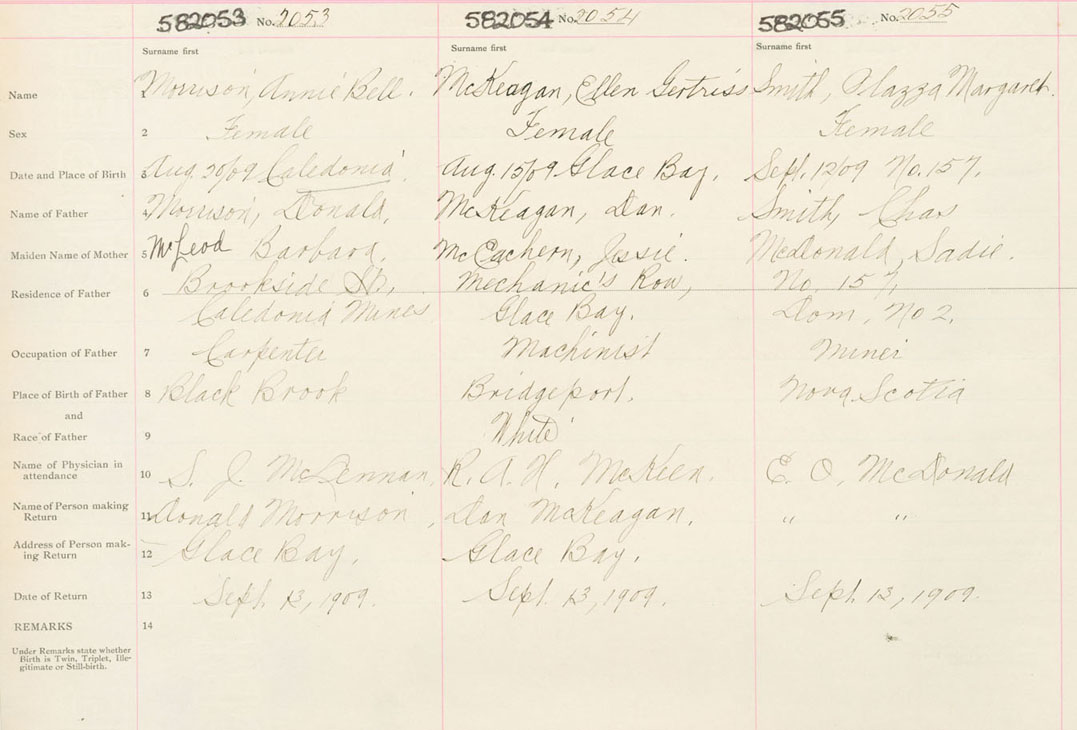 582053 No. 2053 582054 No. 2054 582055 No. 2055
Surname first Surname first Surname first
Name 1 Morrison, Annie Bell. McKeagan, Ellen Gertriss Smith, Plazza Margaret.
Sex 2 Female Female Female
Date and Place of Birth 3 Aug. 20/09 Caledonia. Aug. 15/09 Glace Bay. Sept. 12/09 No. 157.
Name of Father 4 Morrison, Donald, McKeagan, Dan. Smith, Chas
Maiden Name of Mother 5 McLeod Barbara, McEachern, Jessie. McDonald, Sadie.
Residence of Father 6 Brookside St, Mechanic's Row, No. 157,
Caledonia Mines Glace Bay. Dom. No 2.
Occupation of Father 7 Carpenter Machinist Miner
Place of Birth of Father 8 Black Brook Bridgeport. Nova Scotia
and
Race of Father 9 White
Name of Physician in
attendance 10 S. J. McLennan, R. A. H. McKeen. E. O. McDonald
Name of Person making
Return 11 Donald Morrison, Dan McKeagan, " "
Address of Person mak-
ing Return 12 Glace Bay, Glace Bay.
Date of Return 13 Sept. 13, 1909. Sept. 13, 1909. Sept. 13, 1909.
REMARKS 14
Under Remarks state whether
Birth is Twin, Triplet, Ille-
gitimate or Still-birth.